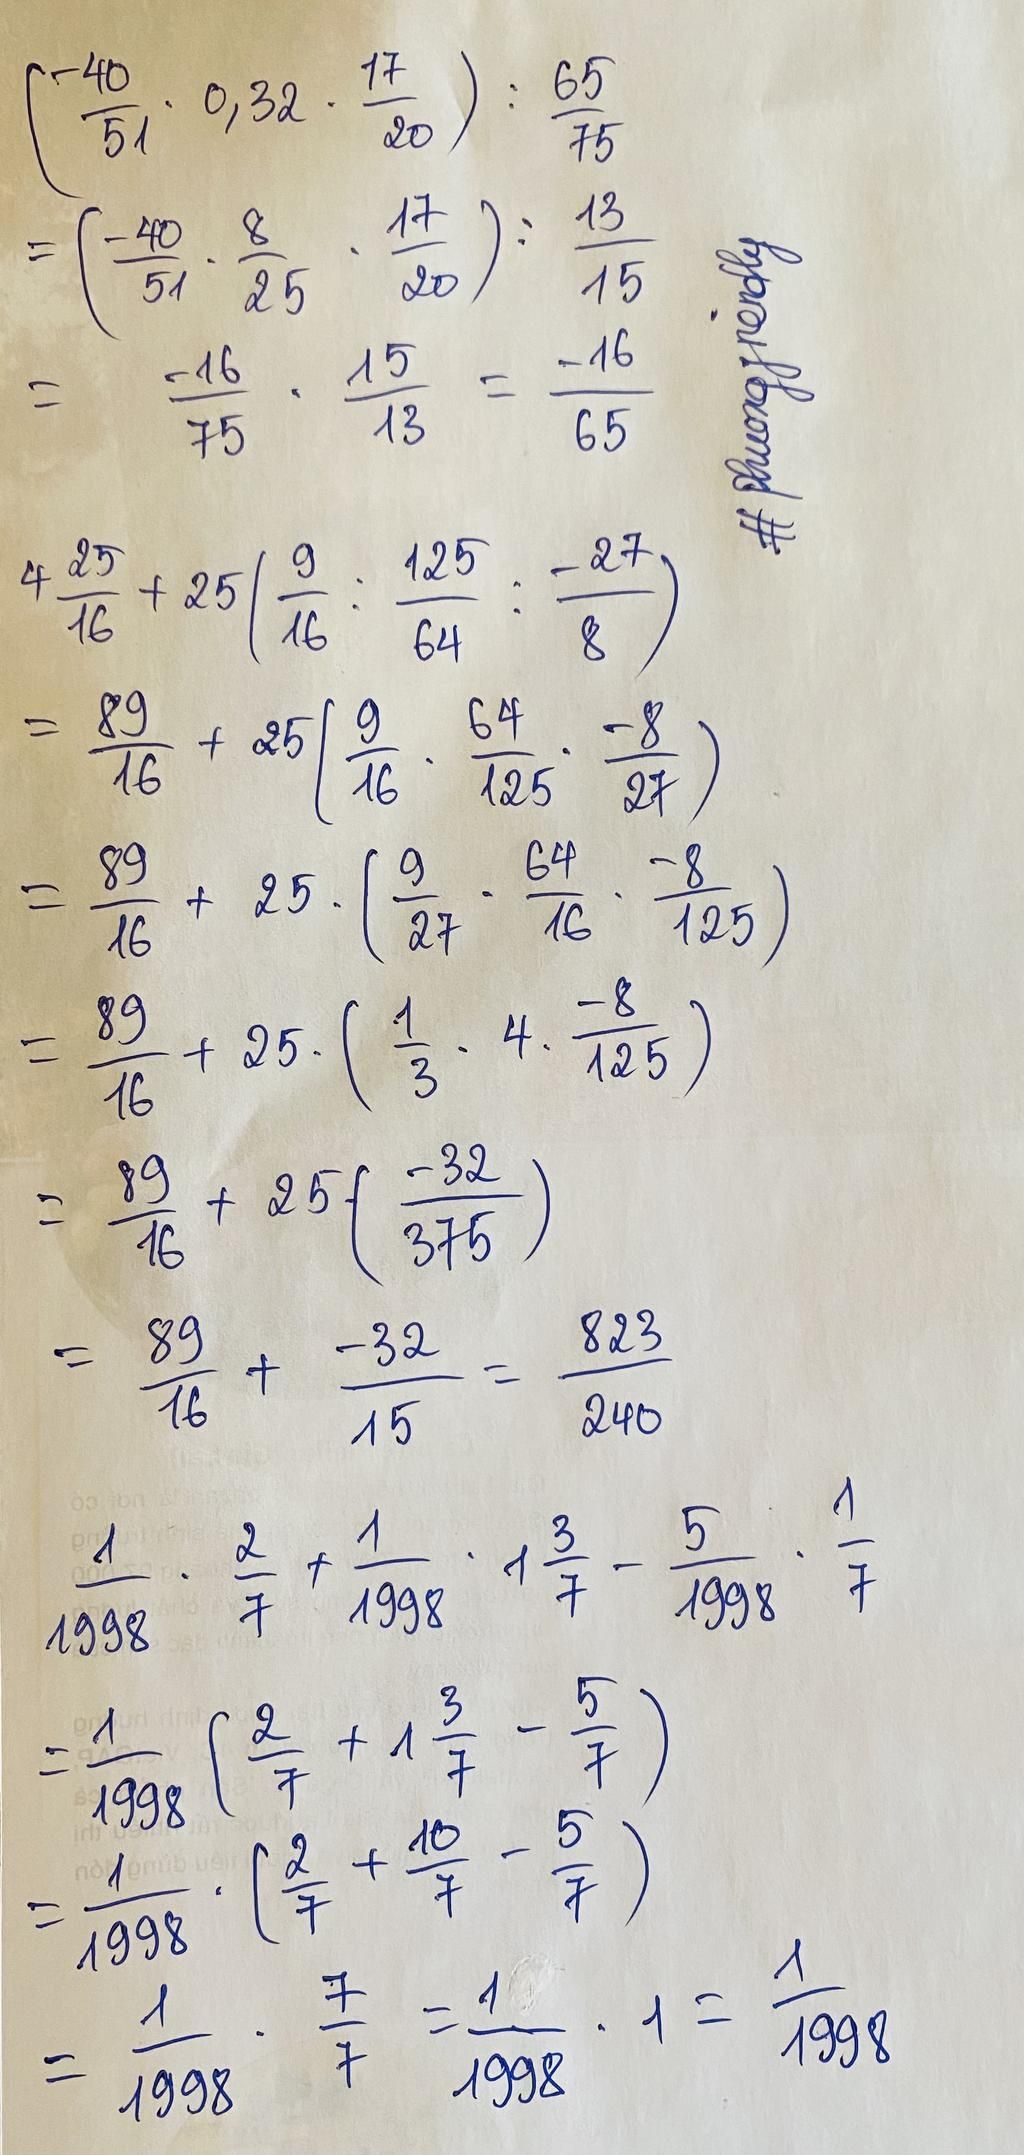 (-40/51 . 0,32 . 17/20) : 65/75
= (-40/51 . 8/25 . 17/20) : 13/15
= -16/75 . 15/13 = -16/65
#phuongfriendly
4 25/16 + 25(9/16 : 125/64 : -27/8)
= 89/16 + 25(9/16 . 64/125 . -8/27)
= 89/16 + 25 . (9/27 . 64/16 . -8/125)
= 89/16 + 25 . (1/3 . 4 . -8/125)
= 89/16 + 25(-32/375)
= 89/16 + -32/15 = 823/240
1/1998 . 2/7 + 1/1998 . 1 3/7 - 5/1998 . 1/7
= 1/1998 (2/7 + 1 3/7 - 5/7)
= 1/1998 . (2/7 + 10/7 - 5/7)
= 1/1998 . 7/7 = 1/1998 . 1 = 1/1998